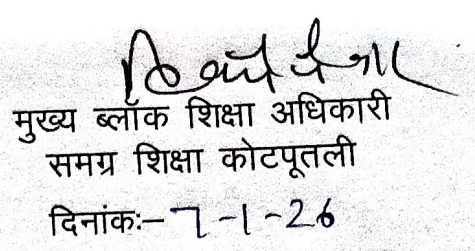 मुख्य ब्लॉक शिक्षा अधिकारी
समग्र शिक्षा कोटपूतली
दिनांकः– 7-1-26